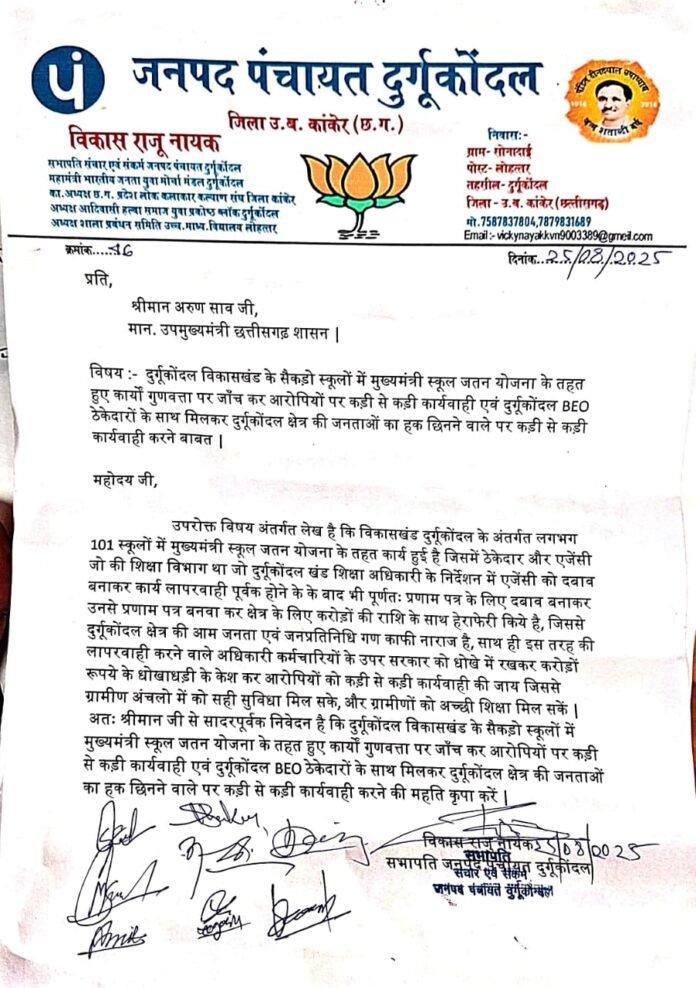 पं
जनपद पंचायत दुर्गूकोंदल
जिला उ.ब. कांकेर (छ.ग.)
पंडित दीनदयाल उपाध्याय
1916 2016
जन्म शताब्दी वर्ष
विकास राजू नायक
सभापति संचार एवं संकर्म जनपद पंचायत दुर्गूकोंदल
महामंत्री भारतीय जनता युवा मोर्चा मंडल दुर्गूकोंदल
का.अध्यक्ष छ.ग. प्रदेश लोक कलाकार कल्याण संघ जिला कांकेर
अध्यक्ष आदिवासी हल्बा समाज युवा प्रकोष्ठ ब्लॉक दुर्गूकोंदल
अध्यक्ष शाला प्रबंधन समिति उच्च.माध्य.विद्यालय लोहत्तर
निवास:-
ग्राम- सोनादाई
पोस्ट- लोहत्तर
तहसील- दुर्गूकोंदल
जिला - उ.ब. कांकेर (छत्तीसगढ़)
मो.7587837804,7879831689
Email:- vickynayakkvn9003389@gmeil.com
क्रमांक....46
दिनांक...25/08/2025
प्रति,
श्रीमान अरुण साव जी,
मान. उपमुख्यमंत्री छत्तीसगढ़ शासन |
विषय :- दुर्गूकोंदल विकासखंड के सैकड़ो स्कूलों में मुख्यमंत्री स्कूल जतन योजना के तहत
हुए कार्यों गुणवत्ता पर जाँच कर आरोपियों पर कड़ी से कड़ी कार्यवाही एवं दुर्गूकोंदल BEO
ठेकेदारों के साथ मिलकर दुर्गूकोंदल क्षेत्र की जनताओं का हक छिनने वाले पर कड़ी से कड़ी
कार्यवाही करने बाबत |
महोदय जी,
उपरोक्त विषय अंतर्गत लेख है कि विकासखंड दुर्गूकोंदल के अंतर्गत लगभग
101 स्कूलों में मुख्यमंत्री स्कूल जतन योजना के तहत कार्य हुई है जिसमें ठेकेदार और एजेंसी
जो की शिक्षा विभाग था जो दुर्गूकोंदल खंड शिक्षा अधिकारी के निर्देशन में एजेंसी को दवाब
बनाकर कार्य लापरवाही पूर्वक होने के के बाद भी पूर्णतः प्रणाम पत्र के लिए दबाव बनाकर
उनसे प्रणाम पत्र बनवा कर क्षेत्र के लिए करोंडों की राशि के साथ हेराफेरी किये है, जिससे
दुर्गूकोंदल क्षेत्र की आम जनता एवं जनप्रतिनिधि गण काफी नाराज है, साथ ही इस तरह की
लापरवाही करने वाले अधिकारी कर्मचारियों के उपर सरकार को धोखे में रखकर करोड़ों
रूपये के धोखाधड़ी के केश कर आरोपियों को कड़ी से कड़ी कार्यवाही की जाय जिससे
ग्रामीण अंचलो में को सही सुविधा मिल सके, और ग्रामीणों को अच्छी शिक्षा मिल सकें |
अतः श्रीमान जी से सादरपूर्वक निवेदन है कि दुर्गूकोंदल विकासखंड के सैकड़ो स्कूलों में
मुख्यमंत्री स्कूल जतन योजना के तहत हुए कार्यों गुणवत्ता पर जाँच कर आरोपियों पर कड़ी
से कड़ी कार्यवाही एवं दुर्गूकोंदल BEO ठेकेदारों के साथ मिलकर दुर्गूकोंदल क्षेत्र की जनताओं
का हक छिनने वाले पर कड़ी से कड़ी कार्यवाही करने की महति कृपा करें |
विकास राजू नायक 25/08/2025
सभापति जनपद पंचायत दुर्गूकोंदल
सभापति
संचार एवं संकर्म
जनपद पंचायत दुर्गूकोन्दल